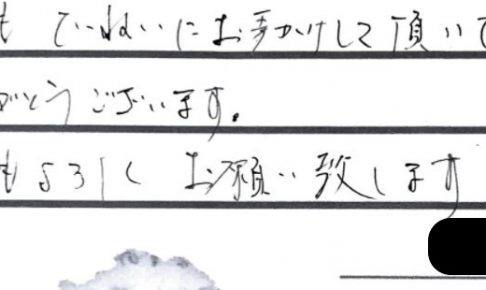 も ていねいにお手かけして頂いて
がとうございます。
もよろしく お願い致します